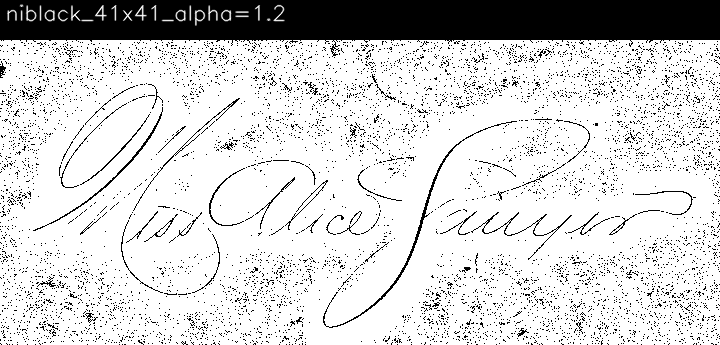 niblack_41x41_alpha=1.2
Miss Alice Sawyer